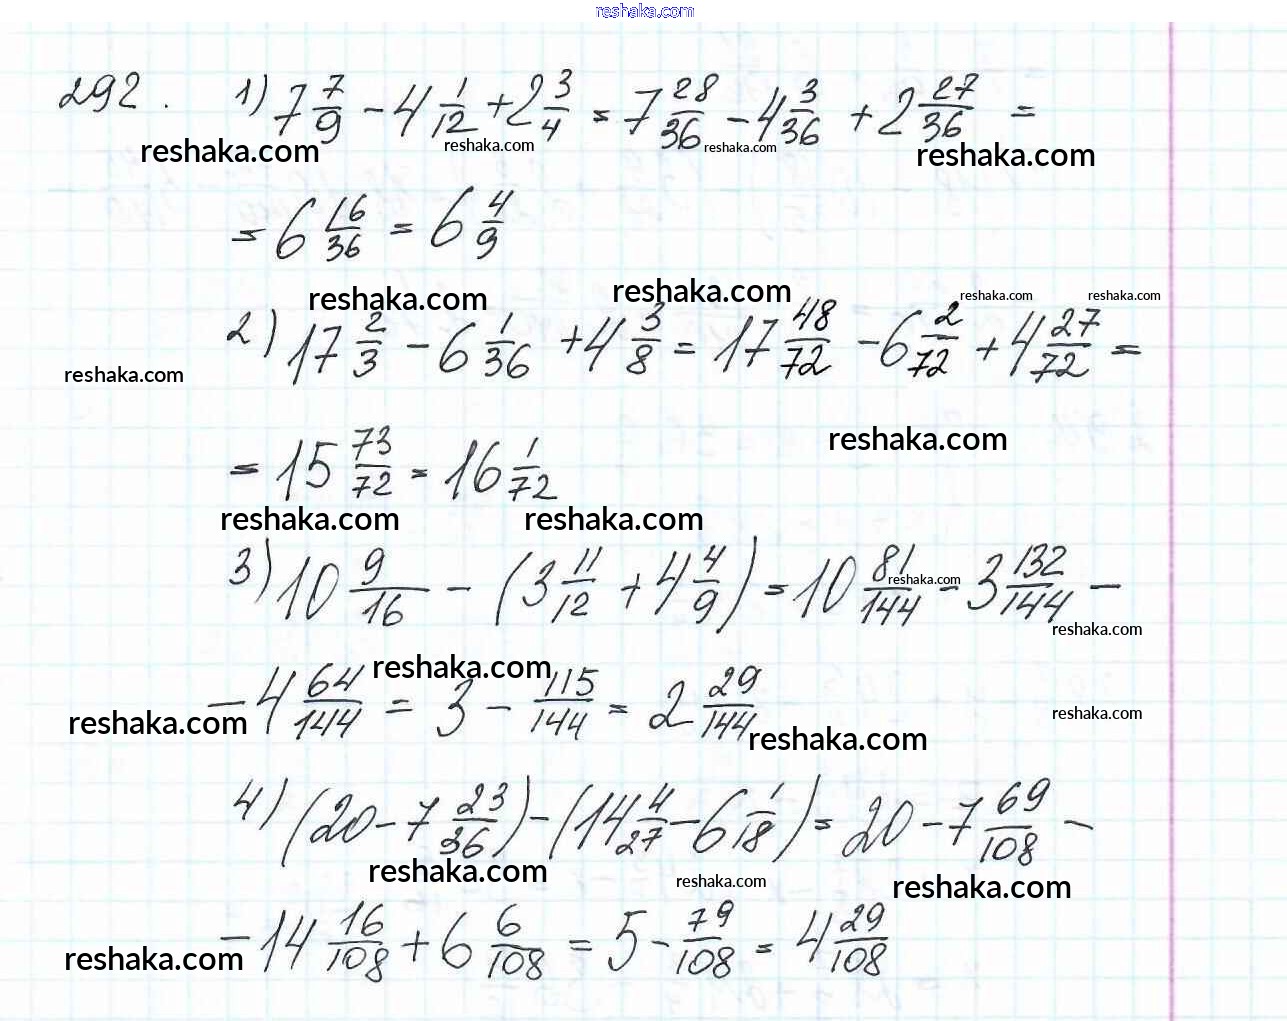 reshaka.com
292. 1) 7 7/9 - 4 1/12 + 2 3/4 = 7 28/36 - 4 3/36 + 2 27/36 =
reshaka.com reshaka.com reshaka.com reshaka.com
= 6 16/36 = 6 4/9
reshaka.com reshaka.com reshaka.com reshaka.com
2) 17 2/3 - 6 1/36 + 4 3/8 = 17 48/72 - 6 2/72 + 4 27/72 =
reshaka.com
reshaka.com
= 15 73/72 = 16 1/72
reshaka.com reshaka.com
3) 10 9/16 - (3 11/12 + 4 4/9) = 10 81/144 - 3 132/144 -
reshaka.com
reshaka.com
reshaka.com
- 4 64/144 = 3 - 115/144 = 2 29/144
reshaka.com reshaka.com
reshaka.com
4) (20 - 7 23/36) - (14 4/27 - 6 1/18) = 20 - 7 69/108 -
reshaka.com reshaka.com reshaka.com
- 14 16/108 + 6 6/108 = 5 - 79/108 = 4 29/108
reshaka.com